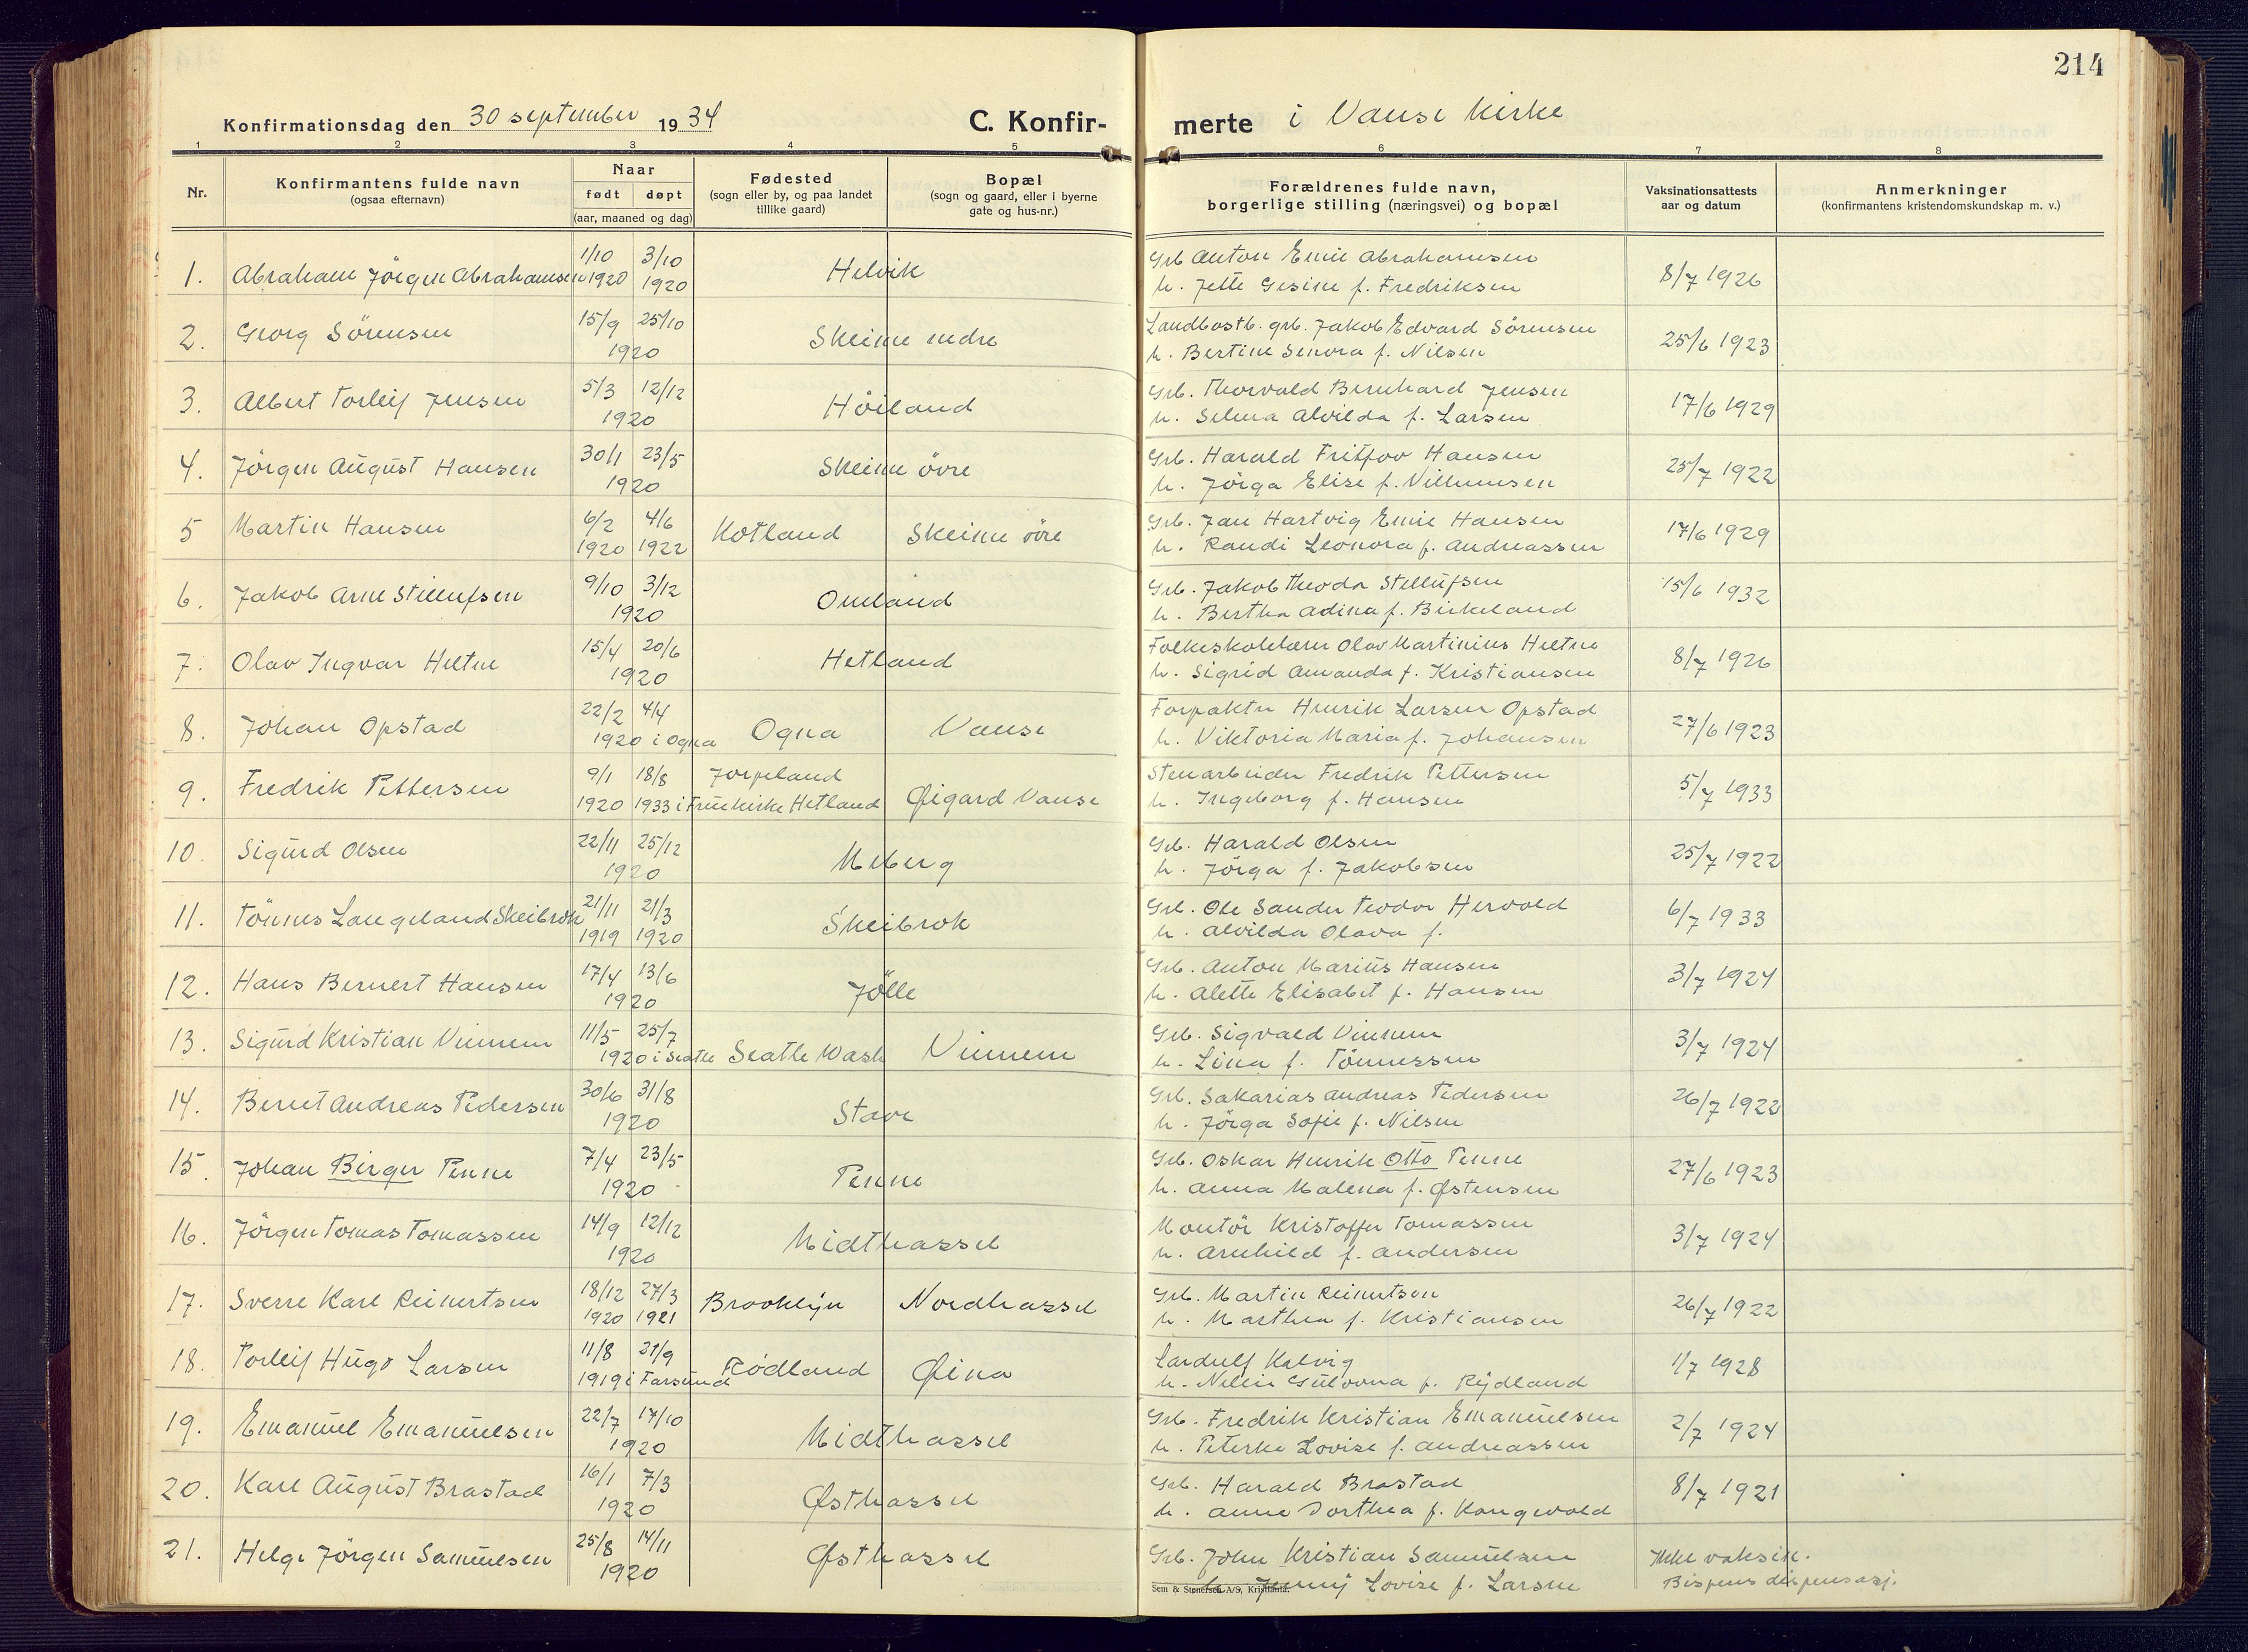 214
Konfirmationsdag den 30 september 1934 C. Konfirmerte i Vanse kirke
1 2 3 4 5 6 7 8
Nr.
Konfirmantens fulde navn
(ogsaa efternavn)
Naar
født døpt
(aar, maaned og dag)
Fødested
(sogn eller by, og paa landet
tillike gaard)
Bopæl
(sogn og gaard, eller i byerne
gate og hus-nr.)
Forældrenes fulde navn,
borgerlige stilling (næringsvei) og bopæl
Vaksinationsattests
aar og datum
Anmerkninger
(konfirmantens kristendomskundskap m. v.)
1/10 3/10 Grb Anton Emil Abrahamsen
1. Abraham Jörgen Abrahamsen 1920 1920 Helvik h. Jette Gesine f. Fredriksen 8/7 1926
15/9 25/10 Landbostb. grb. Jakob Edvard Sörensen
2. Georg Sörensen 1920 Skeime nedre h. Bertine Senora f. Nilsen 25/6 1923
5/3 12/12 Grb. Thorvald Bernhard Jensen
3. Albert Torleif Jensen 1920 Höiland h. Selma Alvilda f. Larsen 17/6 1929
30/1 23/5 Grb. Harald Fritjov Hansen
4. Jörgen August Hansen 1920 Skeime övre h. Jörga Elise f. Villumsen 25/7 1922
6/2 4/6 Grb. Jan Hartvig Emil Hansen
5 Martin Hansen 1920 1922 Kotland Skeime övre h. Randi Leonora f. Andreassen 17/6 1929
9/10 3/12 Grb. Jakob Theodor Stellufsen
6. Jakob Arne Stellufsen 1920 Omland h. Bertha Adina f. Birkeland 15/6 1932
15/4 20/6 Folkeskolelærer Olav Martinius Heltne
7. Olav Ingvar Heltne 1920 Hetland h. Sigrid Amanda f. Kristiansen 8/7 1926
22/2 4/4 Forpakter Henrik Larsen Opstad
8. Johan Opstad 1920 i Ogna Ogna Vanse h. Viktoria Maria f. Johansen 27/6 1923
9/1 18/8 Jorpeland Stenarbeider Fredrik Pettersen
9. Fredrik Pettersen 1920 1933 i Fruekirke Hetland Øigard Vanse h. Ingeborg f. Hansen 5/7 1933
22/11 25/12 Grb. Harald Olsen
10. Sigurd Olsen 1920 Meberg h. Jörga f. Jakobsen 25/7 1922
21/11 21/3 Grb. Ole Sander Teodor Hervold
11. Tönnes Langeland Skeibrok 1919 1920 Skeibrok h. Alvilda Olava f. 6/7 1933
17/4 13/6 Grb. Anton Marius Hansen
12. Hans Bernert Hansen 1920 Jölle h. Alette Elisabet f. Hansen 3/7 1924
11/5 25/7 Grb. Sigvald Vinnem
13. Sigurd Kristian Vinnem 1920 i Seatle Seatle Wash Vinnem h. Lina f. Tönnessen 3/7 1924
30/6 31/8 Grb. Sakarias Andreas Pedersen
14. Berut Andreas Pedersen 1920 Stave h. Jörga Sofie f. Nilsen 26/7 1922
7/4 23/5 Grb. Oskar Henrik Otto Penne
15. Johan Birger Penne 1920 Penne h. Anna Malena f. Østensen 27/6 1923
14/9 12/12 Montör Kristoffer Tomassen
16. Jörgen Tomas Tomassen 1920 Midthassel h. Arnhild f. Andersen 3/7 1924
18/12 27/3 Grb. Martin Reinertsen
17. Sverre Karl Reinertsen 1920 1921 Brooklyn Nordhassel h. Marthea f. Kristiansen 26/7 1922
11/8 21/9 Lardulf Kalvig
18. Torleif Hugo Larsen 1919 i Farsund Rödland Øina h. Nellie Gulovna f. Rydland 1/7 1928
22/7 17/10 Grb. Fredrik Kristian Emanuelsen
19. Emanuel Emanuelsen 1920 Midthassel h. Peterke Lovise f. Andreassen 2/7 1924
16/1 7/3 Grb. Harald Brastad
20. Karl August Brastad 1920 Østhassel h. Anne Dorthea f. Kongevold 8/7 1921
25/8 14/11 Grb. John Kristian Samuelsen Ikke vaksin.
21. Helge Jörgen Samuelsen 1920 Østhassel h. Jenny Lovise f. Larsen Bispens dispensasj.
Sem & Stenersen A/S, Kristiania.